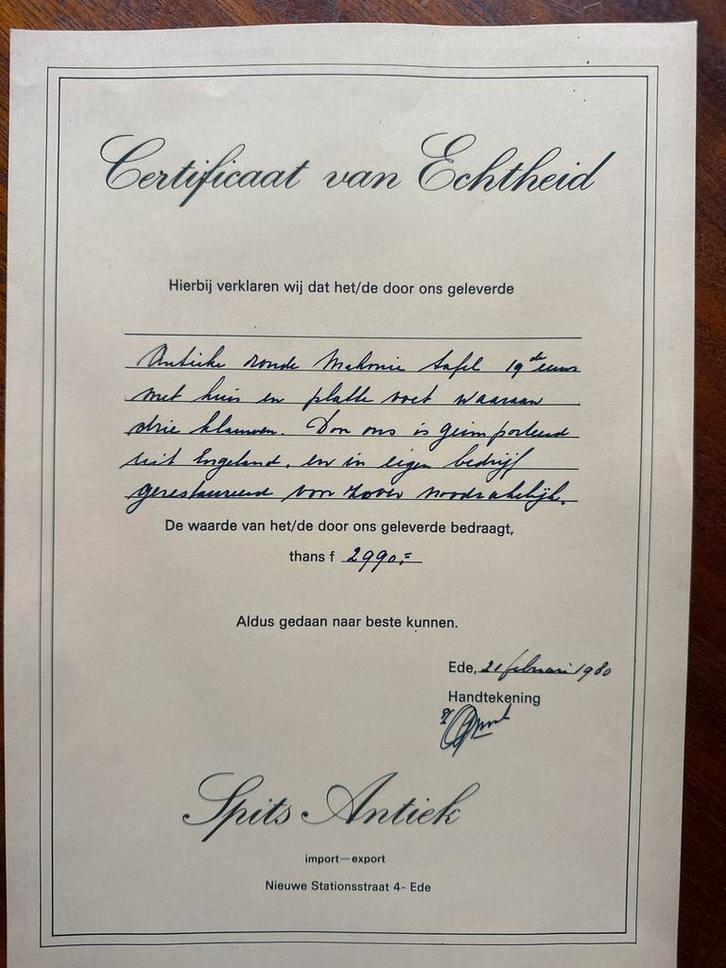 Certificaat van Echtheid
Hierbij verklaren wij dat het/de door ons geleverde
Antieke ronde Mahonie tafel 19de eeuw
met huis en platte voet waaraan
drie klauwen. Door ons is geimporteerd
uit Engeland. en in eigen bedrijf
gerestaureerd voor zover noodzakelijk.
De waarde van het/de door ons geleverde bedraagt,
thans f 2990,=
Aldus gedaan naar beste kunnen.
Ede, 21 februari 1980
Handtekening
Spits Antiek
import—export
Nieuwe Stationsstraat 4- Ede